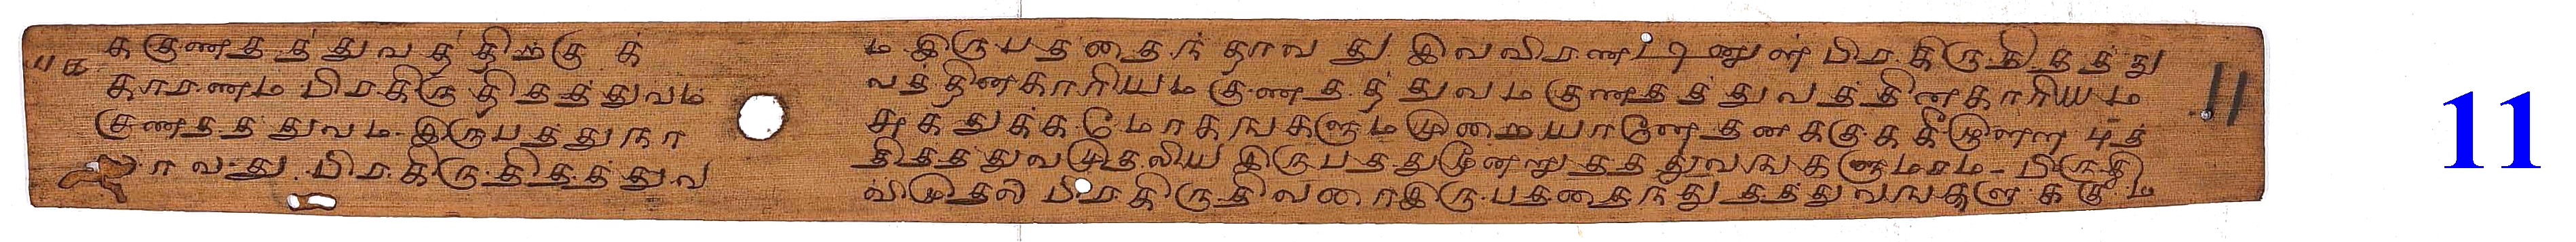 க குணதத்துவத்திற்குக்
காரணம் பிரகிருதிதத்துவம்
குணதத்துவம். இருபத்துநா
வது. பிரகிருதிதத்துவ
ம. இருபததைந்தாவது இவவிரண்டினுள் பிரகிருதிதத்து
வத்தின்காரியம் குணதத்துவம் குணதத்துவத்தின்காரியம்
சுகதுக்க மோகஙகளும்முறையானே தனக்கு கீழுள்ள புத்
திதத்துவமுதலிய இருபத்துமூன்றுதத்துவஙகளுமாம் - பிருதி
விமுதல் பிரகிருதிவரைஇருபத்தைந்துதத்துவஙகளுக்கும்
11
11